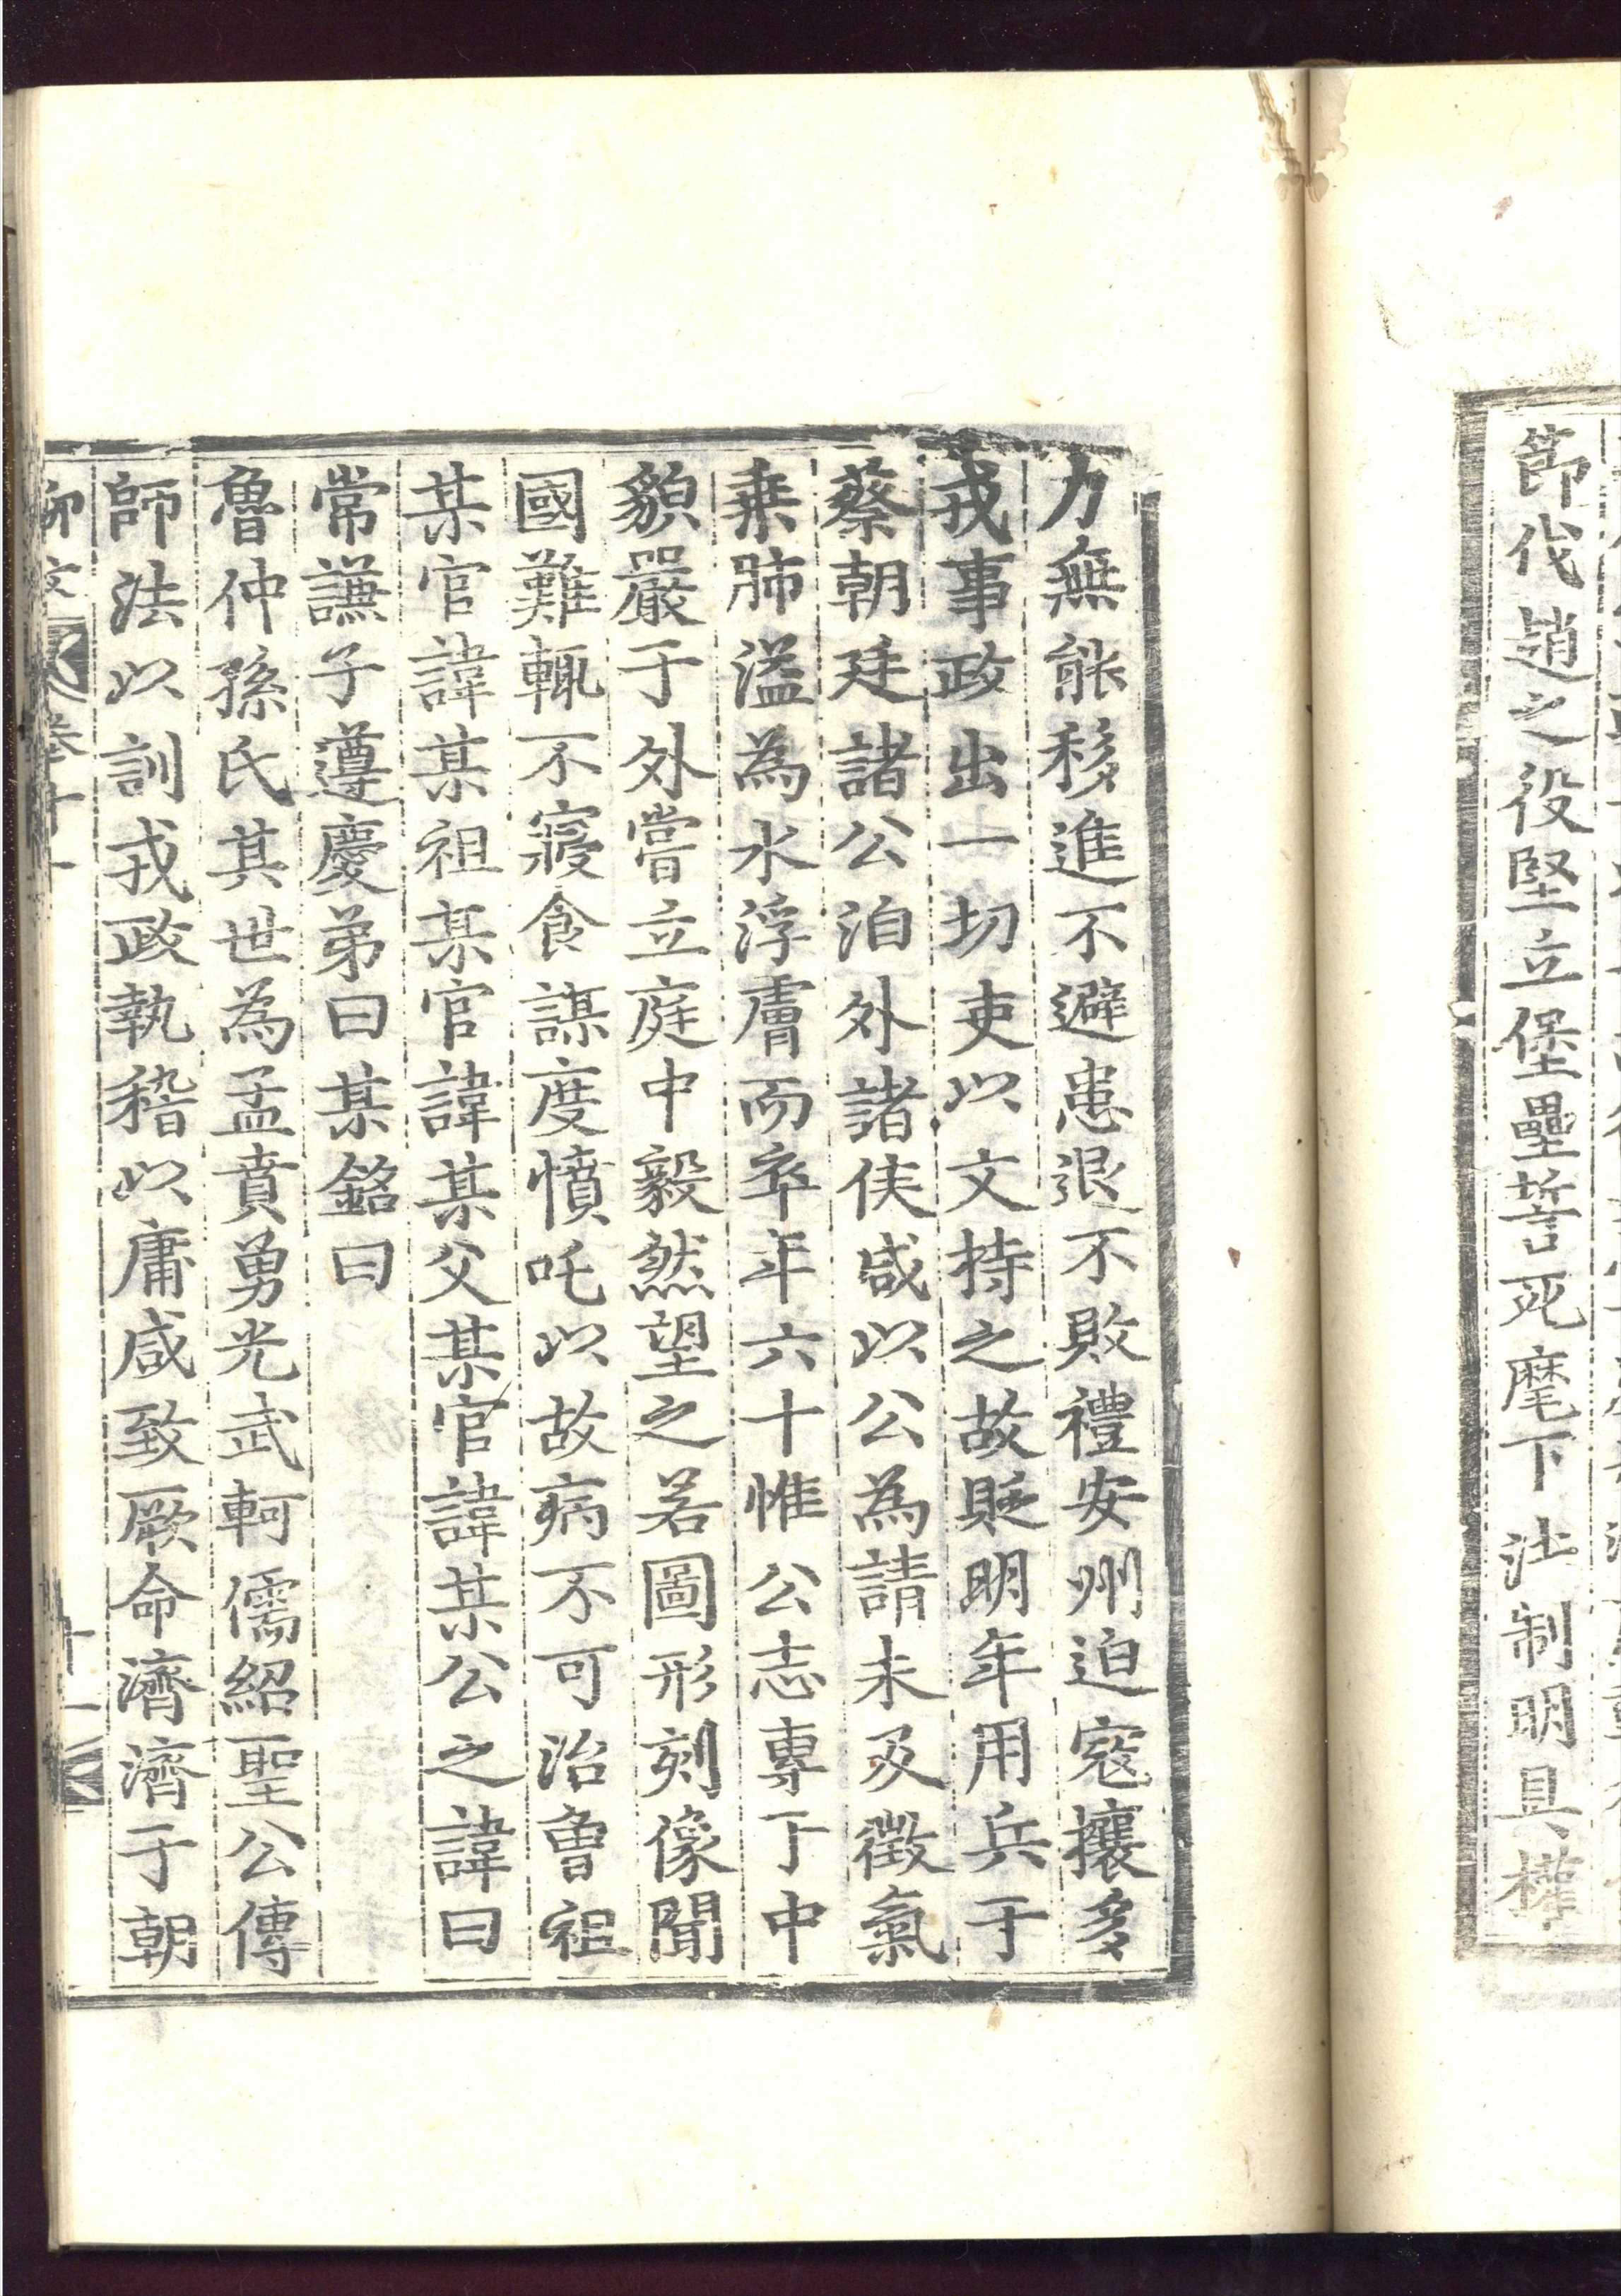 節伐趙之役堅立堡壘誓死麾下法制明具權
力無能移進不避患退不敗禮安州迫寇攘多
戎事政出一切吏以文持之故貶明年用兵于
蔡朝廷諸公洎外諸侯咸以公為請未及徵氣
乗肺溢為水浮膚而卒年六十惟公志專于中
貌嚴于外嘗立庭中毅然望之若圖形刻像聞
國難輒不寢食謀度憤吒以故病不可治魯祖
某官諱某祖某官諱某父某官諱某公之諱曰
常謙子遵慶弟曰某銘曰
魯仲孫氏其世為孟賁勇光武軻儒紹聖公傳
師法以訓戎政執稽以庸咸致厥命濟濟于朝
柳文 卷十一
十一